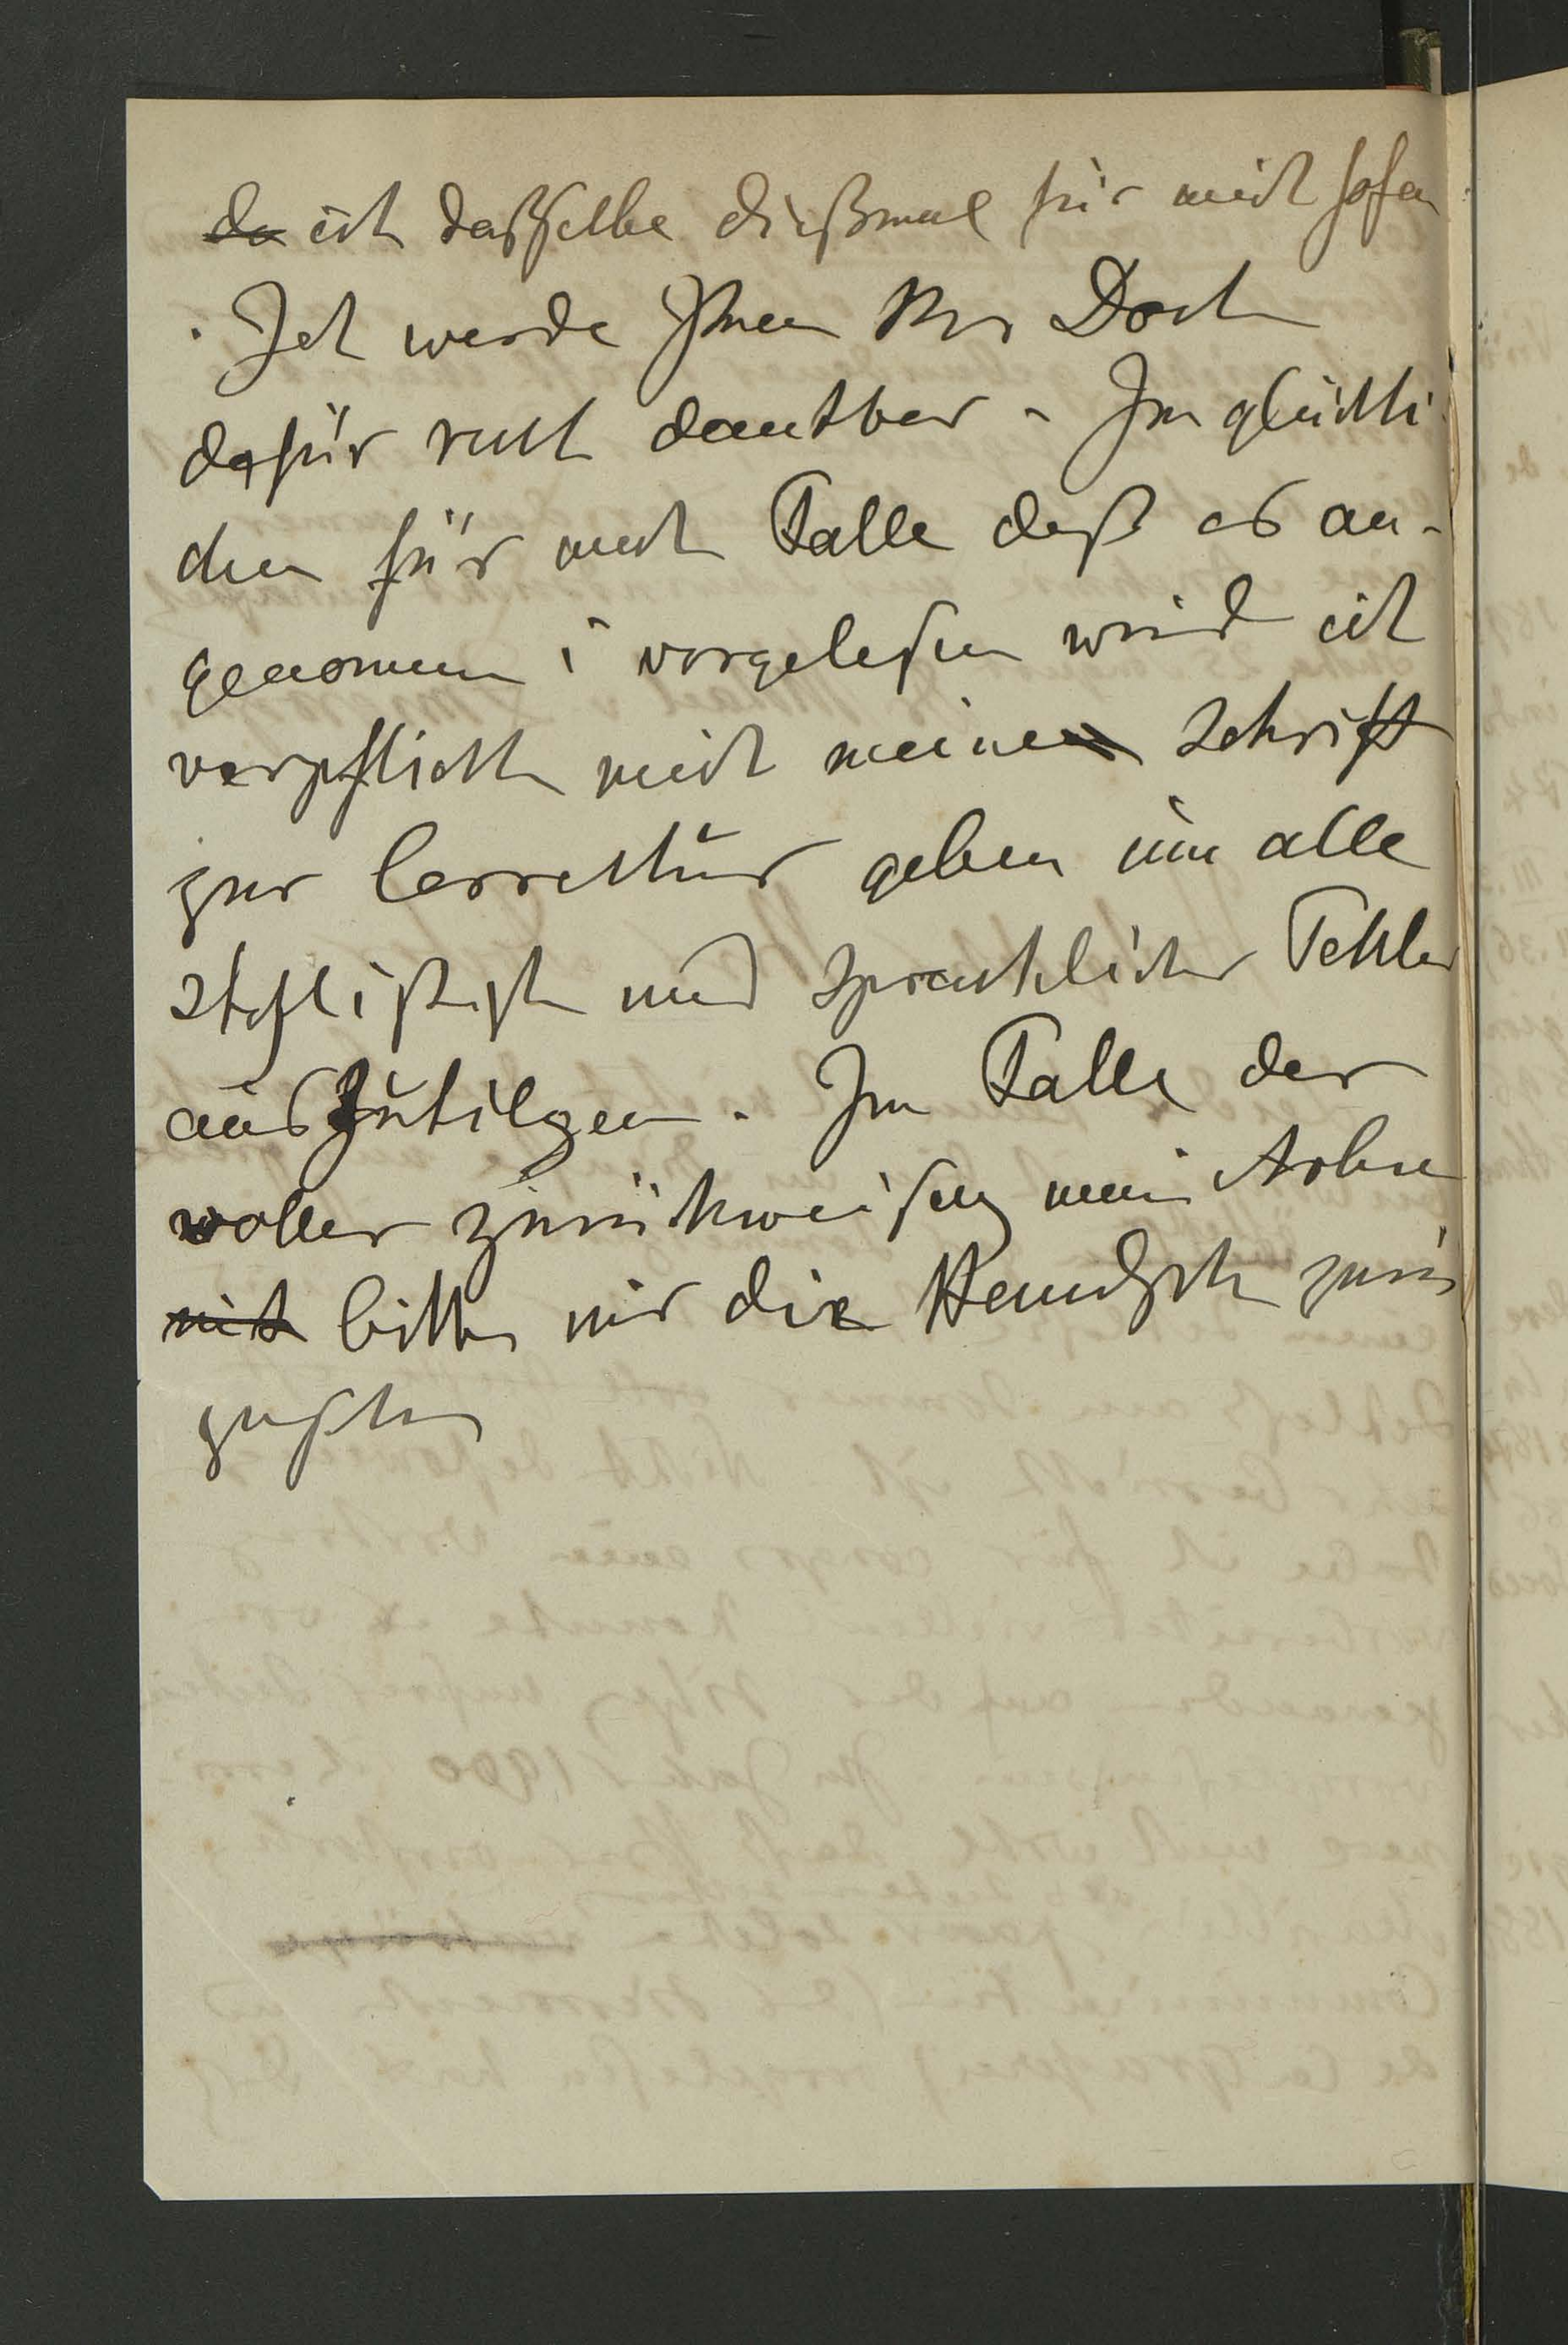 da ich dasselbe dießmal für mich
. Ich werde Ihnen Hr Doct
dafür recht dankbar. Im glückli
chen für mich Falle daß es an-
genomen i vorgelesen wird ich
verpflichte mich meine Schrift
zur Correktur geben um alle
stylistisch und sprachlicher Fehler
auszutilgen. Im Falle der
voller zurückweisung mein Arbe
mit bitte mir die Handsch zurü